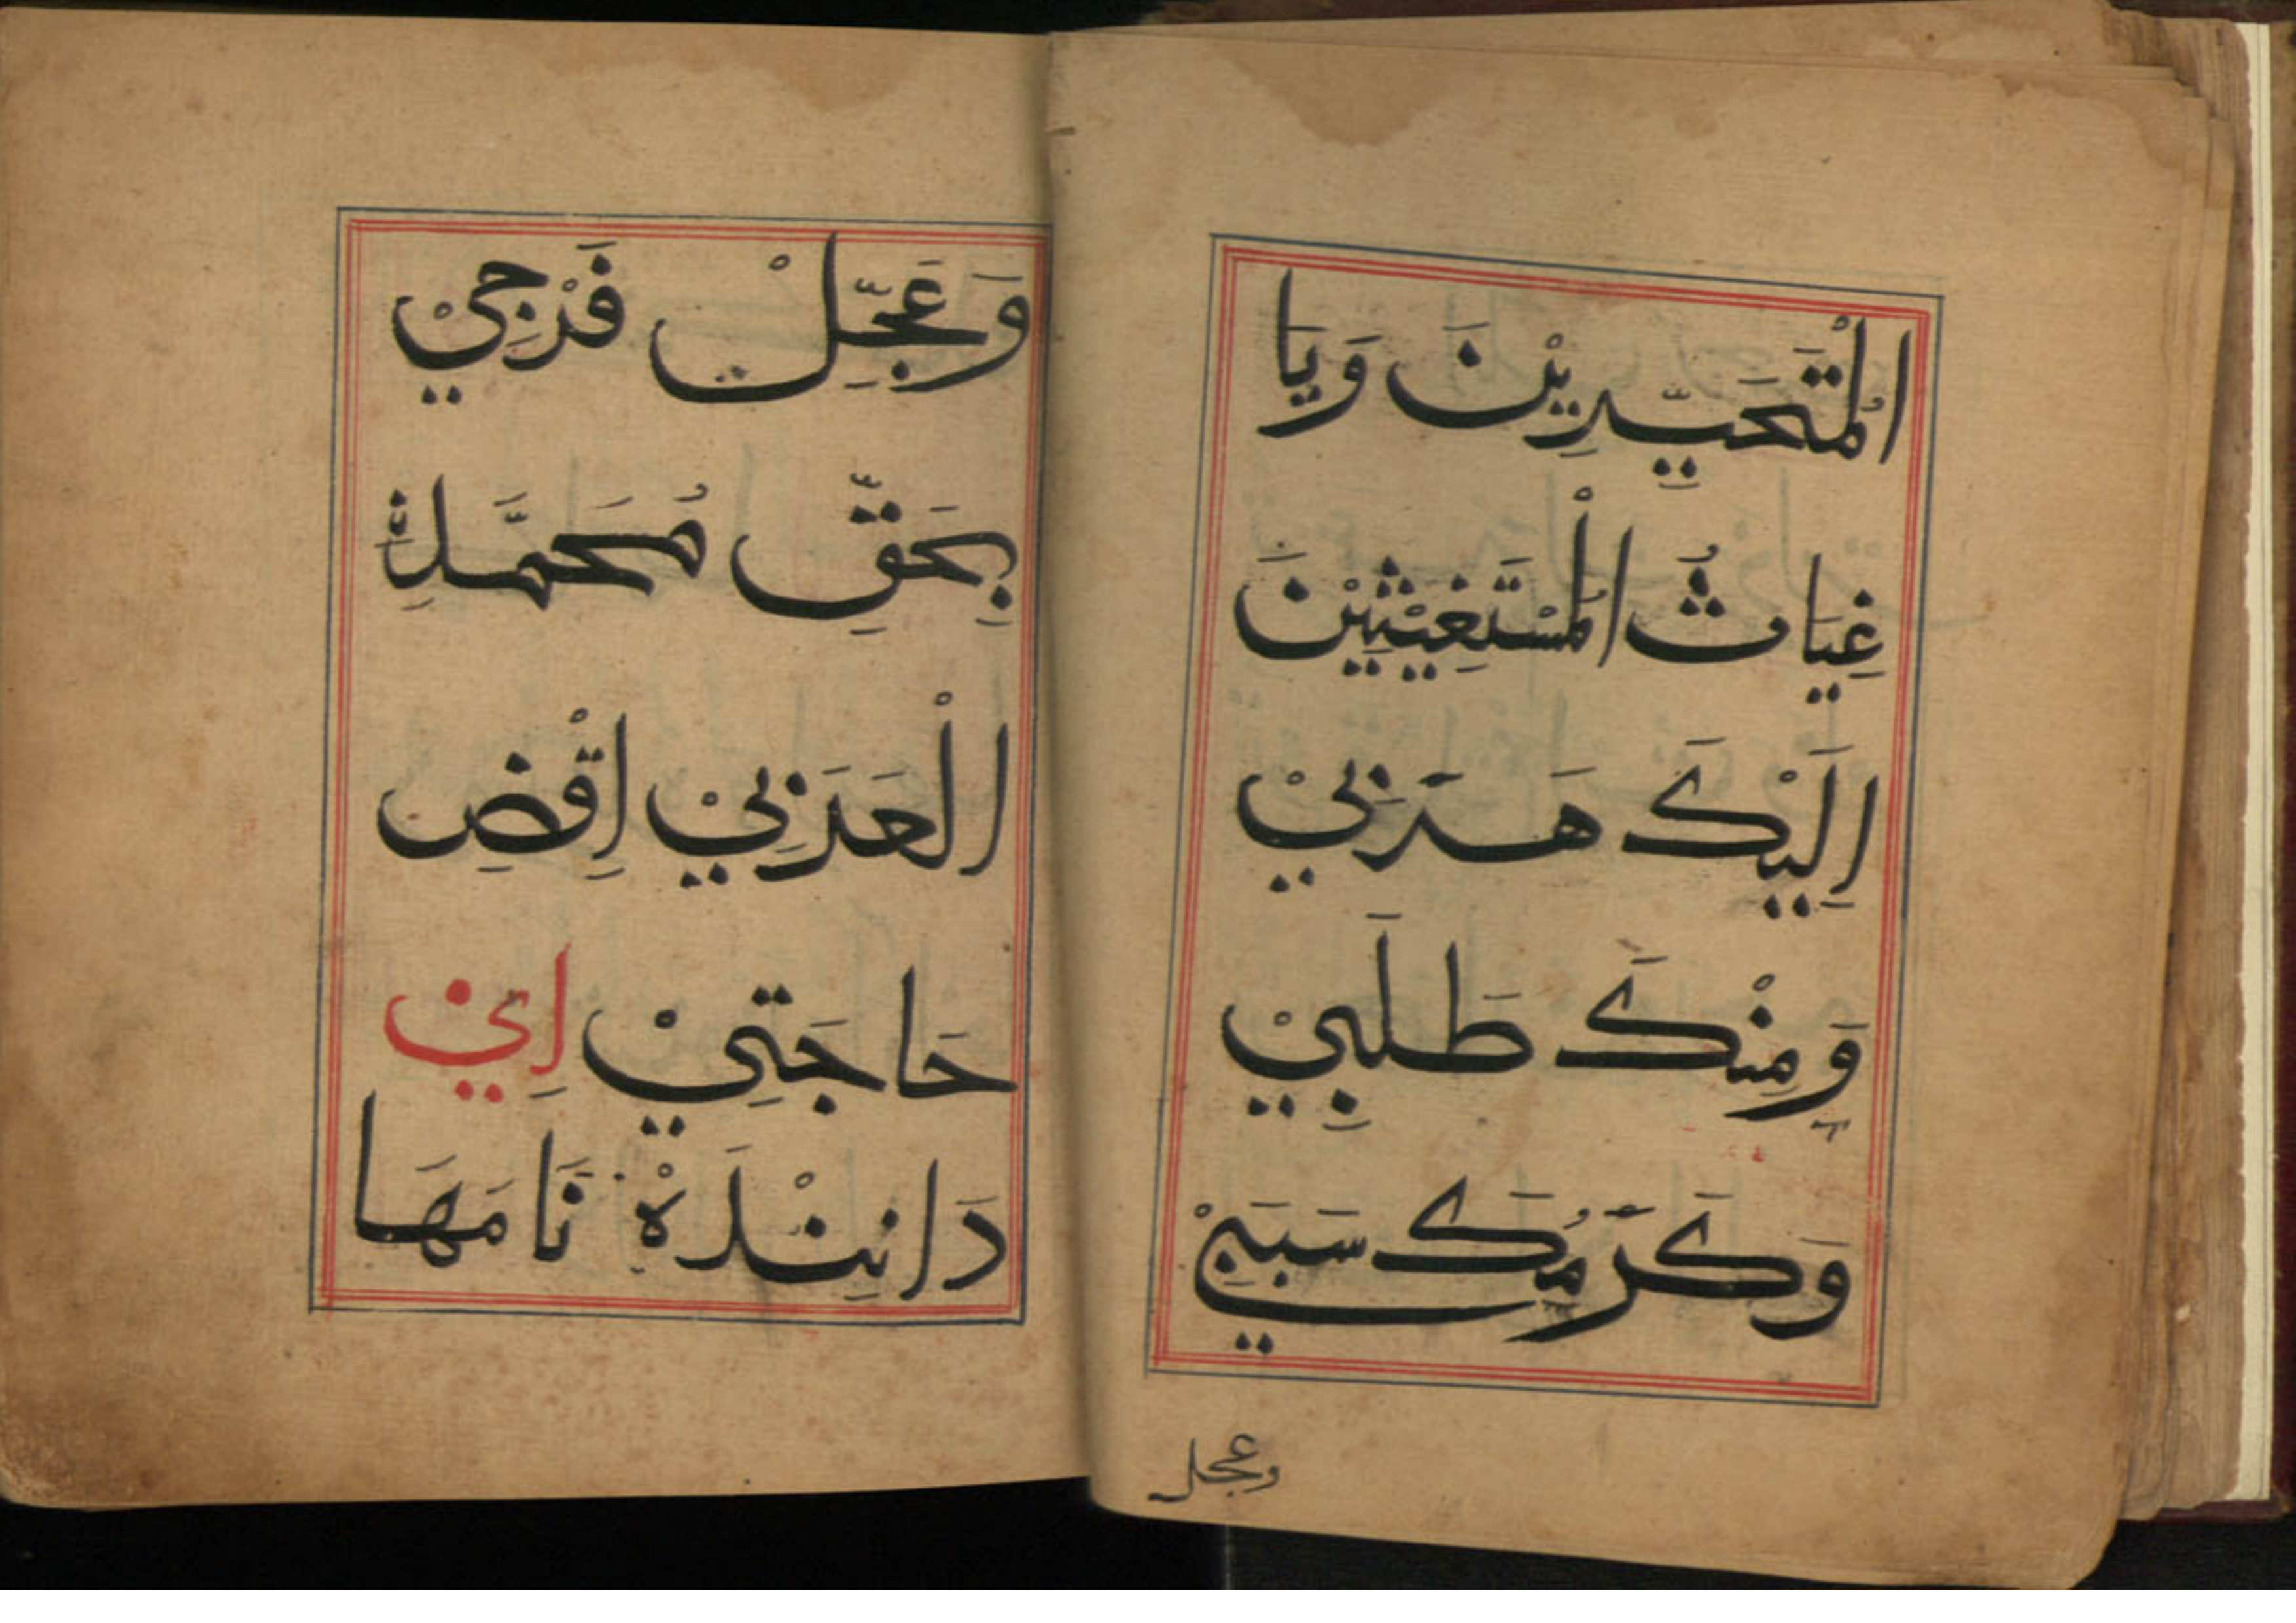 الْمُتَحَيِّرِيْنَ وَيَا
غِيَاثُ الْمُسْتَغِيْثِيْنَ
اِلَيْكَ هَرَبِيْ
وَمِنْكَ طَلَبِيْ
وَكَرَمُكَ سَبَبِيْ
وعجل
وَعَجِّلْ فَرْجِيْ
بِحَقِّ مُحَمَّدِنِ
الْعَرَبِيْ اِقْضِ
حَاجَتِيْ اِي
دَانِنْدَهْ نَامَهَا